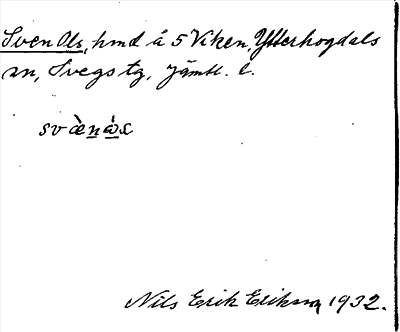 Sven Ols, hmd å 5 Viken, Ytterhogdals
sn, Svegs tg, Jämtl. l.
Nils Erik Eriksson 1932.